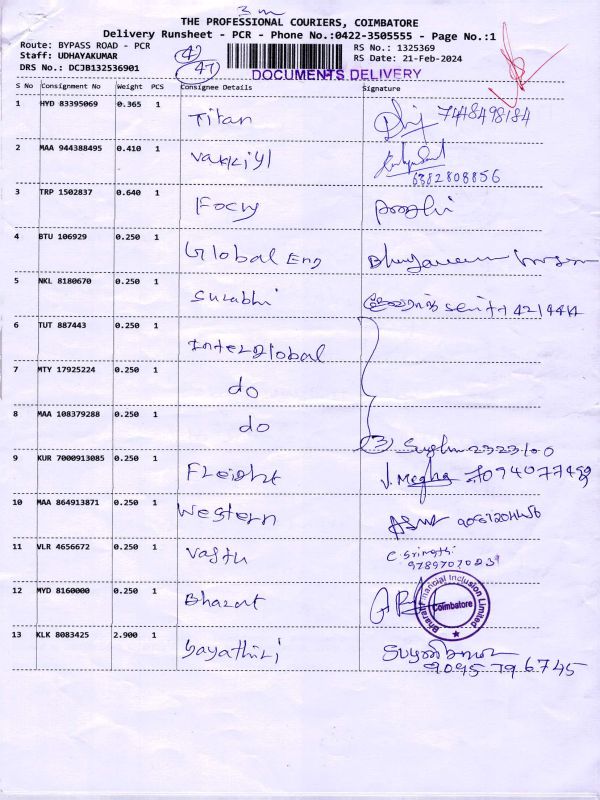 3 m
THE PROFESSIONAL COURIERS, COIMBATORE
Delivery Runsheet - PCR - Phone No.:0422-3505555 - Page No.:1
Route: BYPASS ROAD - PCR
Staff: UDHAYAKUMAR
DRS No.: DCJB132536901
42
47
RS No.: 1325369
RS Date: 21-Feb-2024
DOCUMENTS DELIVERY
S No Consignment No Weight PCS Consignee Details Signature
1 HYD 83395069 0.365 1 Titan 7448498184
2 MAA 944388495 0.410 1 Vakkiyl
6382808856
3 TRP 1502837 0.640 1 Focu
4 BTU 106929 0.250 1 Global Eng
5 NKL 8180670 0.250 1 Surabhi
6 TUT 887443 0.250 1 Interglobal
7 MTY 17925224 0.250 1 do
8 MAA 108379288 0.250 1 do
3
9 KUR 7000913085 0.250 1 Freight J. Megha
10 MAA 864913871 0.250 1 Western
11 VLR 4656672 0.250 1 Vastu C Srimathi
12 MYD 8160000 0.250 1 Bharat
Bharat Financial Inclusion Limited
Coimbatore
13 KLK 8083425 2.900 1 Gayathiri
9095796745